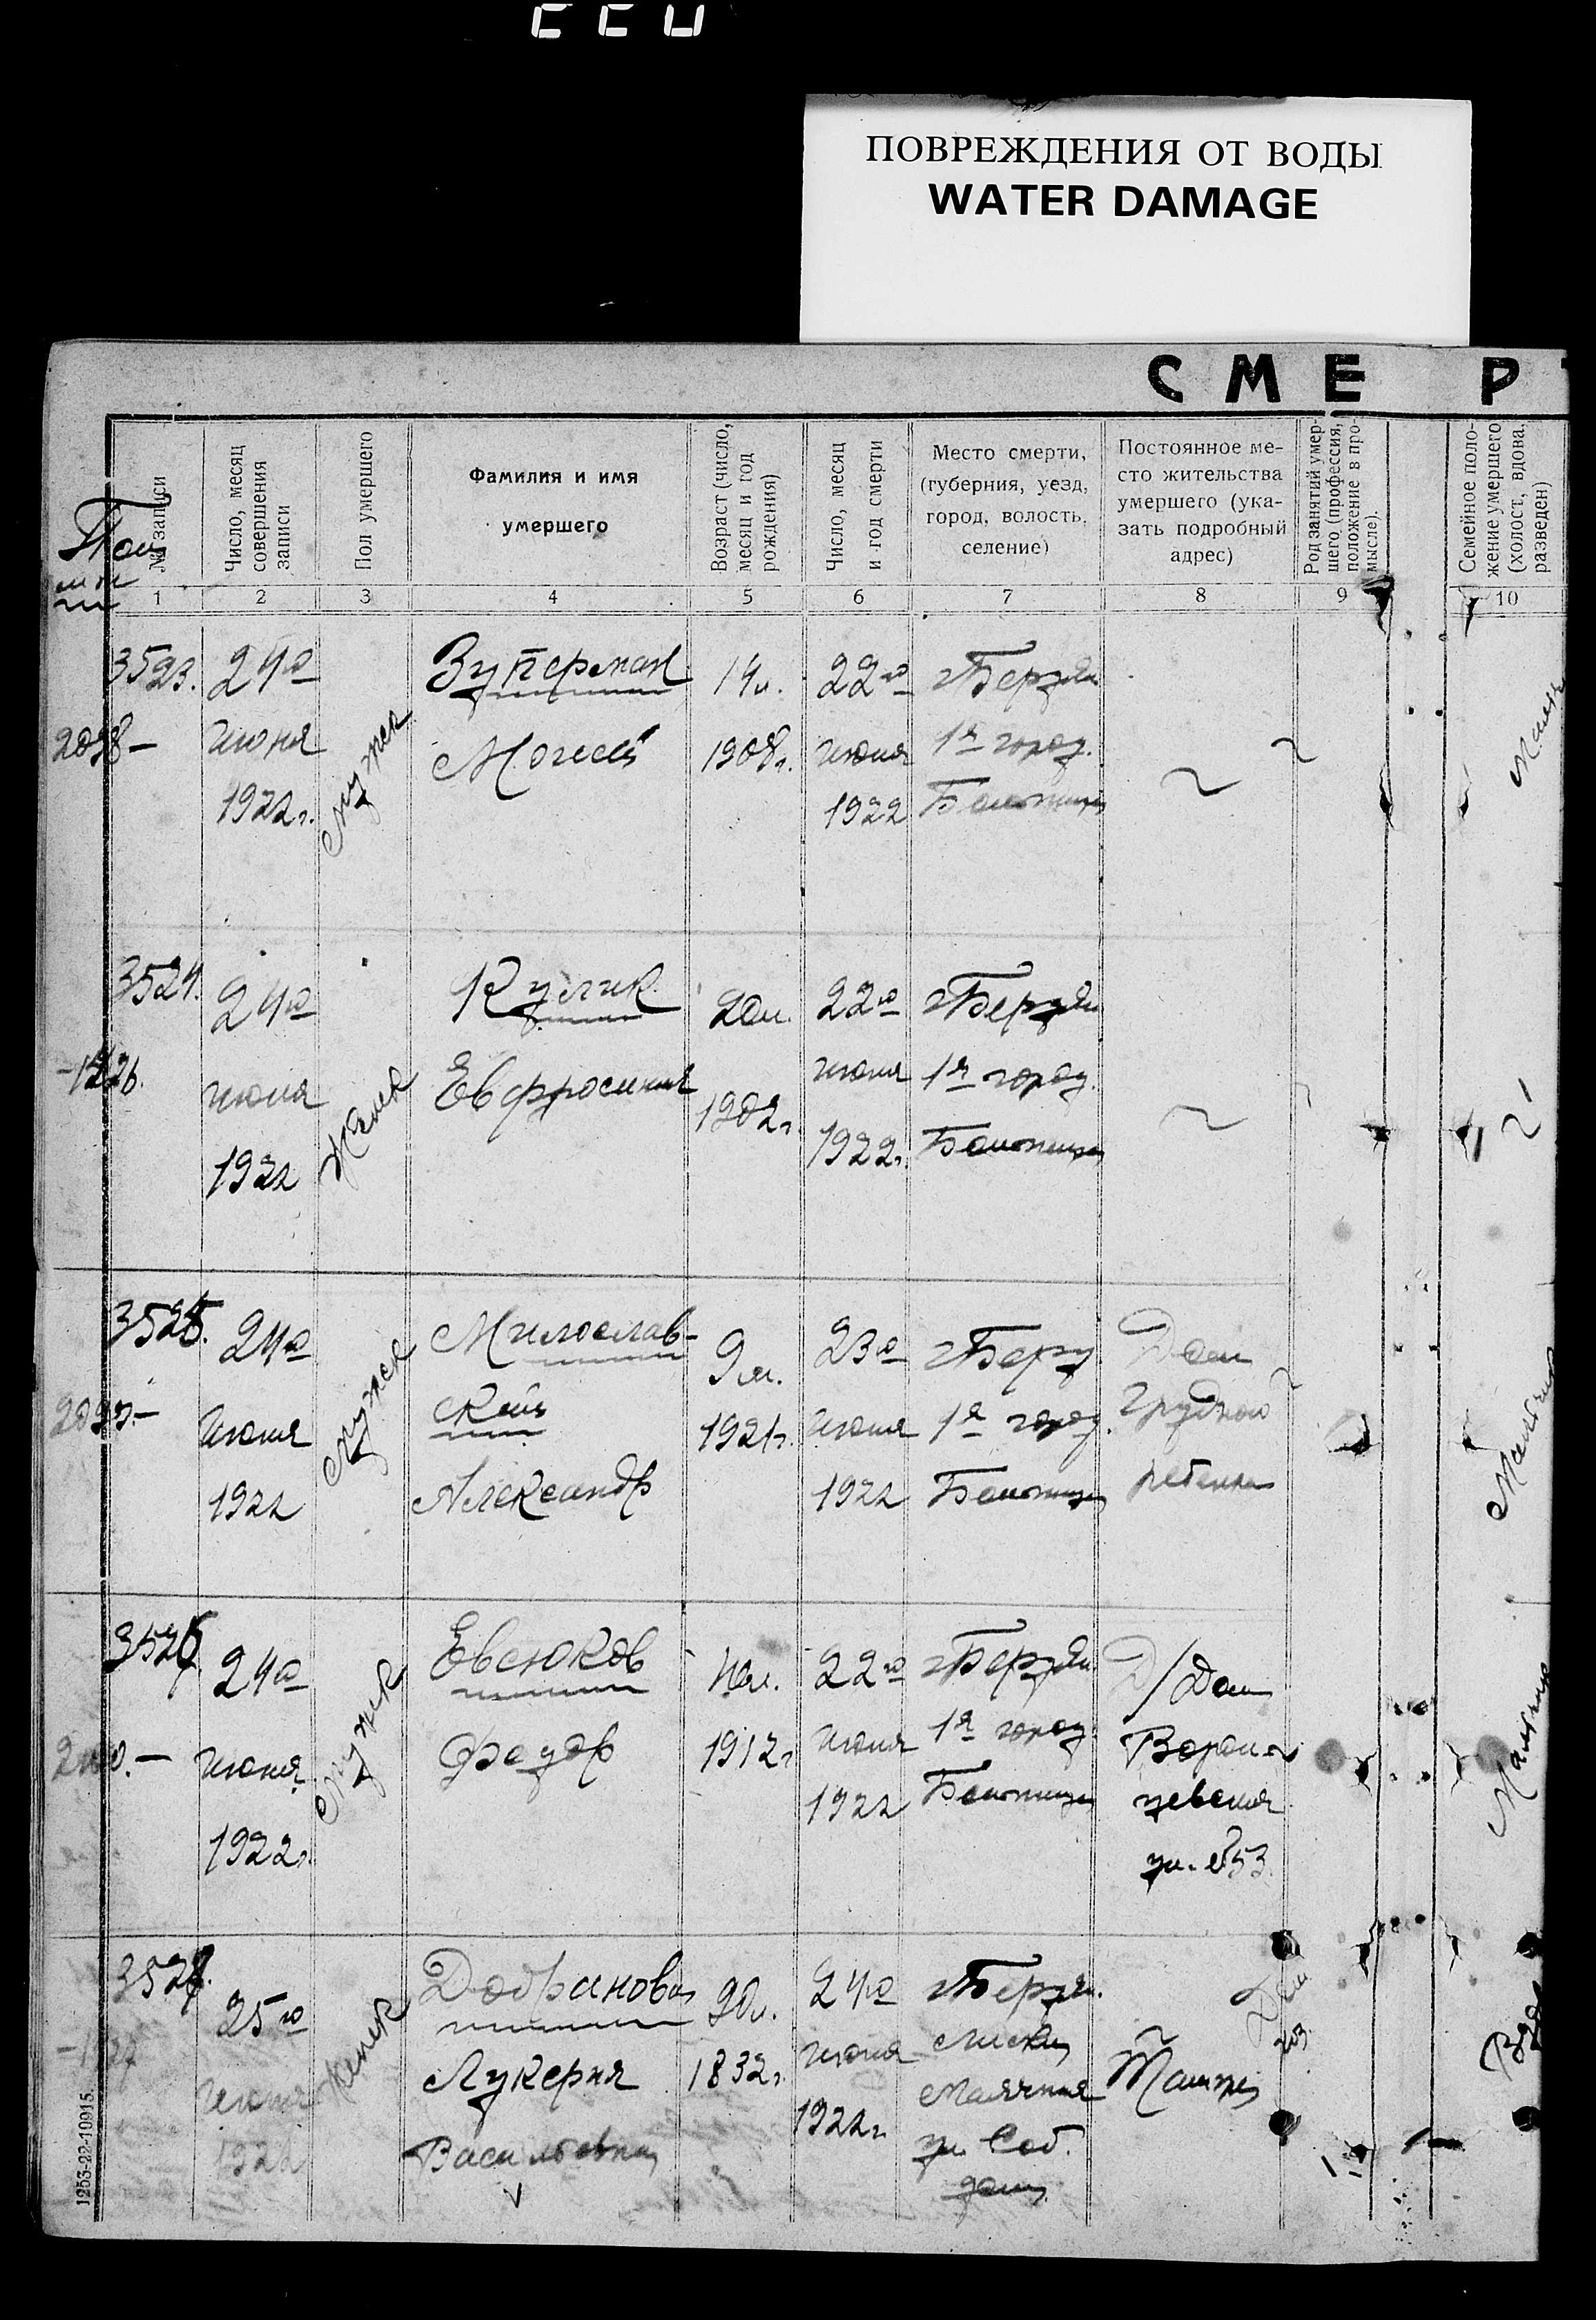 ПОВРЕЖДЕНИЯ ОТ ВОДЫ
WATER DAMAGE
С М Е Р
№ записи
Число, месяц
совершения
записи
Пол умершего
Фамилия и имя
умершего
Возраст (число,
месяц и год
рождения)
Число, месяц
и год смерти
Место смерти,
(губерния, уезд,
город, волость,
селение)
Постоянное ме-
сто жительства
умершего (ука-
зать подробный
адрес)
Род занятий умер-
шего (профессия,
положение в про-
мысле).
Семейное поло-
жение умершего
(холост, вдова,
разведен)
1 2 3 4 5 6 7 8 9 10
3523.
24го
июня
1922г.
мужск
Зуперман
Моисей
14л.
1908г.
22го
июня
1922
г Бердян
1я город.
Больница
3524.
24го
июня
1922
Женск
Кулик
Евфросиния
20л.
1902г.
22го
июня
1922г.
г Бердян
1я город.
Больница
3525.
24го
июня
1922
мужск
Милослав-
ский
Александр
9м.
1921г.
23го
июня
1922
г Берд
1я город.
Больница
Дом
Грудного
ребенка
Мальчик
3526
24го
июня
1922г.
мужск
Евсюков
Федор
10л.
1912г
22го
июня
1922
г Бердян
1я город.
Больница
Д/Дом
Ворон-
цовская
ул. №53.
Мальчик
3527.
25го
июня
1922
женск
Лукерия
Васильевна
90л.
1832г.
24го
июня
1922г.
г Бердян.
Маячная
ул. Соб.
дом
Там же
1253-22-10915.